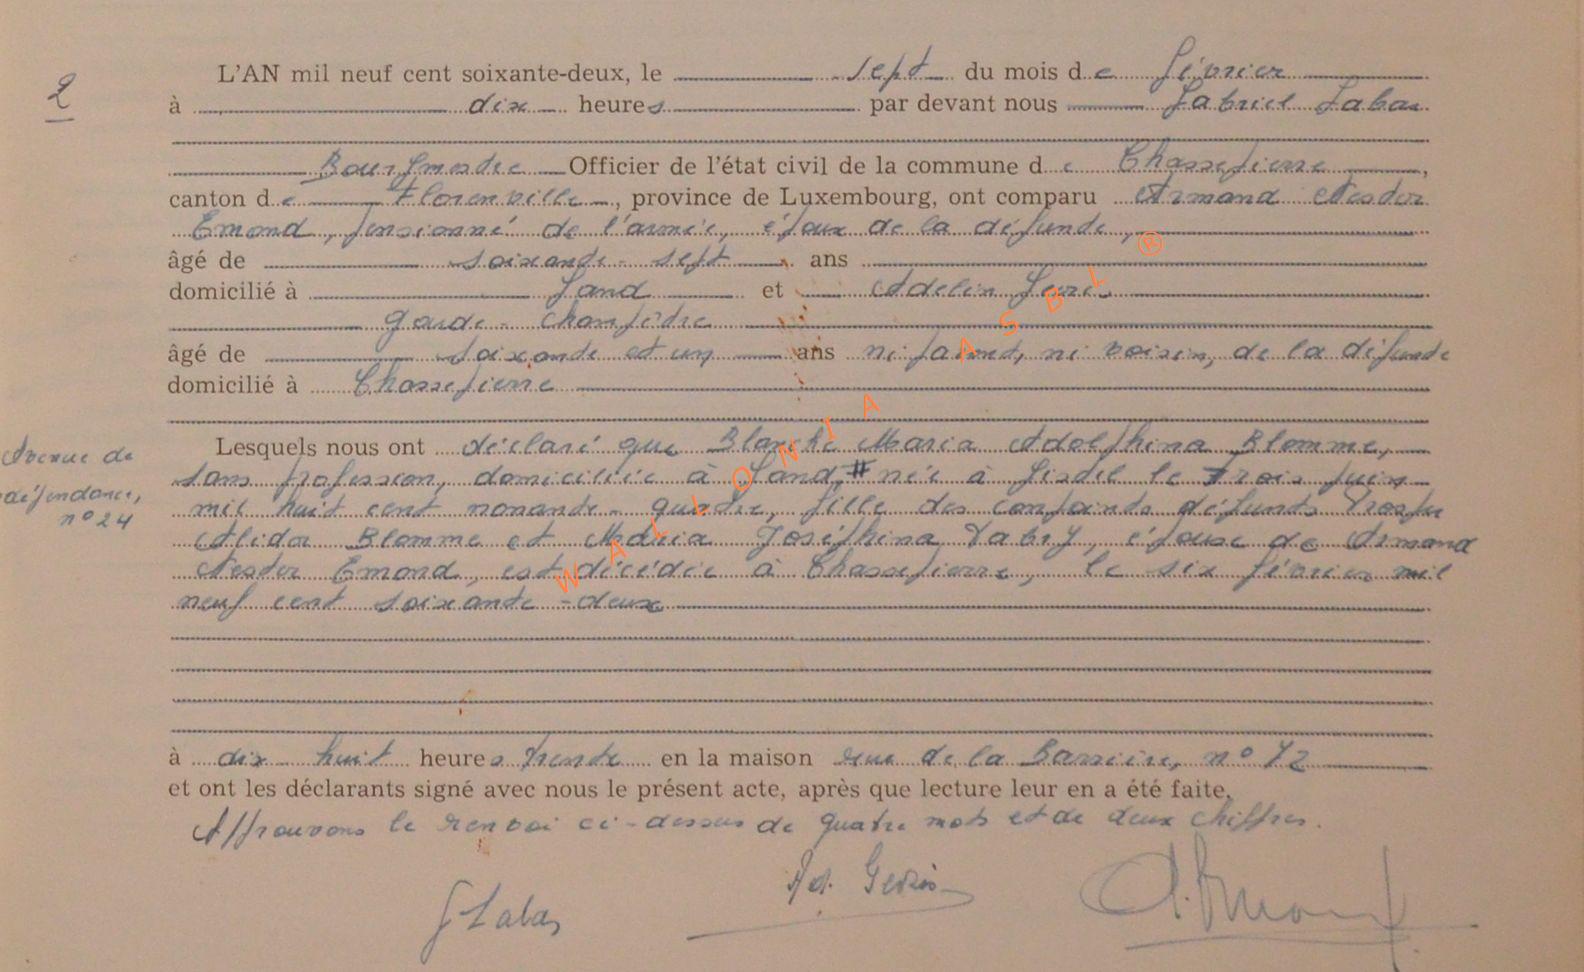 2
L'AN mil neuf cent soixante-deux, le sept du mois de février
à dix heures par devant nous Gabriel Labar
Bourgmestre Officier de l'état civil de la commune de Chassepierre,
canton de Florenville, province de Luxembourg, ont comparu Armand Nestor
Emond, pensionné de l'armée, époux de la défunte,
âgé de soixante-sept ans
domicilié à Gand et Adelin
garde-champêtre
âgé de soixante et un ans ni parent, ni voisin, de la défunte
domicilié à Chassepierre
Lesquels nous ont déclaré que Blanche Maria Adolphina Blomme,
sans profession, domiciliée à Gand, # née à le trois juin
mil huit cent nonante-quatre, fille des conjoints défunts Prosper
Alidor Blomme et Maria Joséphina, épouse de Armand
Nestor Emond, est décédée à Chassepierre, le six février mil
neuf cent soixante-deux
Avenue de
défendance,
n° 24
à dix-huit heures trente en la maison rue de la Barrière, n° 72
et ont les déclarants signé avec nous le présent acte, après que lecture leur en a été faite.
Approuvons le renvoi ci-dessus de quatre mots et de deux chiffres.
G Labar
Ad.
A. Emond
WALLONIA ASBL ®